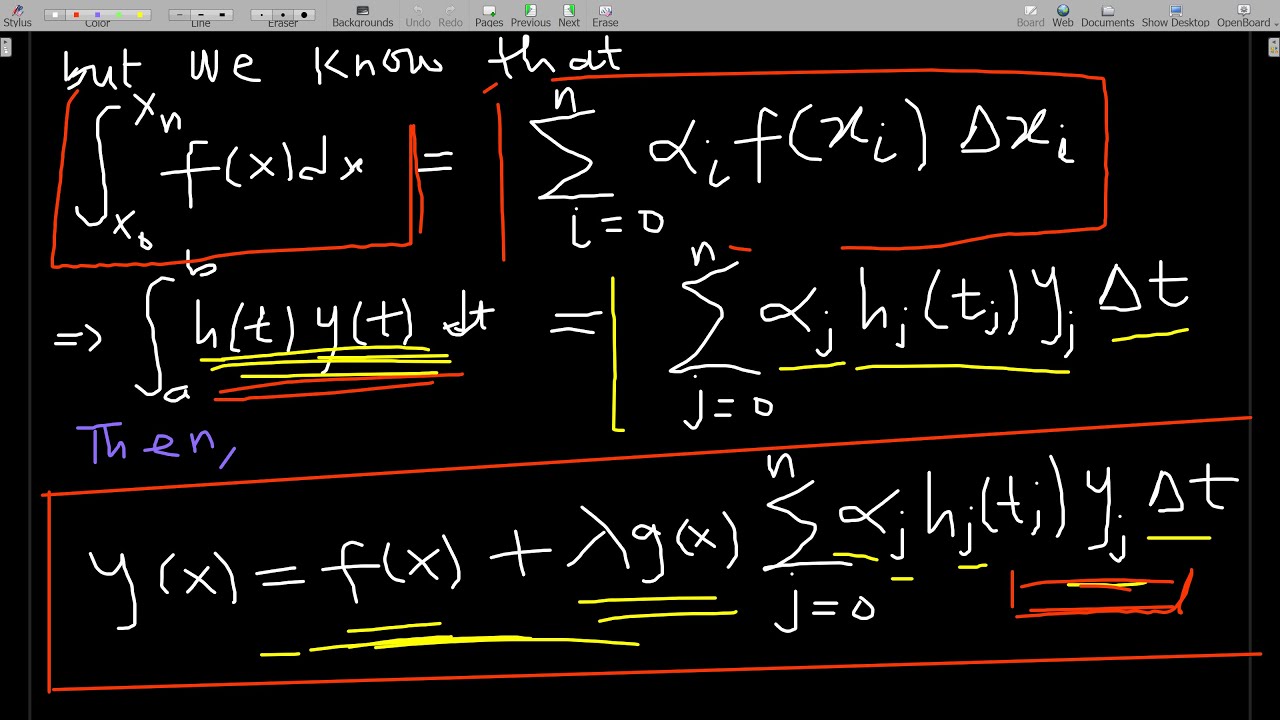 Stylus Color Line Eraser Backgrounds Undo Redo Pages Previous Next Erase Board Web Documents Show Desktop OpenBoard
but we know that
∫_{x₀}^{xₙ} f(x)dx = Σ_{i=0}^{n} αᵢ f(xᵢ) Δxᵢ
=> ∫_{a}^{b} h(t) y(t) dt = Σ_{j=0}^{n} αⱼ hⱼ(tⱼ) yⱼ Δt
Then,
y(x) = f(x) + λg(x) Σ_{j=0}^{n} αⱼ hⱼ(tⱼ) yⱼ Δt